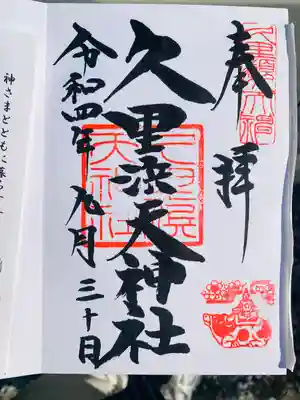 奉拝
久里浜天神社
令和四年 九月 三十日
神さまとともに暮ら